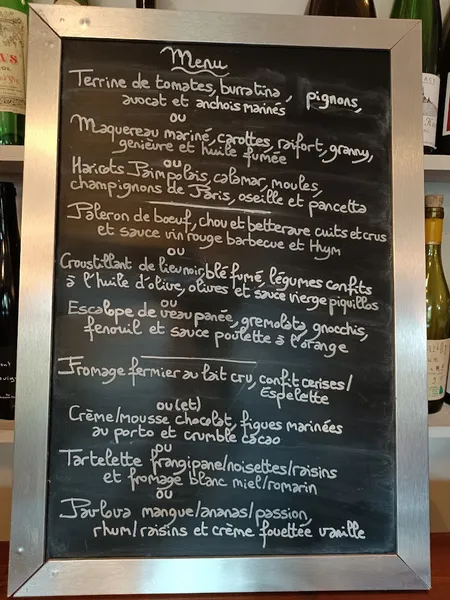 Menu
Terrine de tomates, burratina, pignons,
avocat et anchois marinés
ou
Maquereau mariné, carottes, raifort, granny,
genièvre et huile fumée
ou
Haricots Paimpolais, calamar, moules,
champignons de Paris, oseille et pancetta
Paleron de boeuf, chou et betterave cuits et crus
et sauce vin rouge barbecue et thym
ou
Croustillant de lieu noir, blé fumé, légumes confits
à l'huile d'olive, olives et sauce vierge piquillos
ou
Escalope de veau panée, gremolata, gnocchis,
fenouil et sauce poulette à l'orange
Fromage fermier au lait cru, confit cerises/
Espelette
ou(et)
Crème/mousse chocolat, figues marinées
au porto et crumble cacao
ou
Tartelette frangipane/noisettes/raisins
et fromage blanc miel/romarin
ou
Pavlova mangue/ananas/passion,
rhum/raisins et crème fouettée vanille